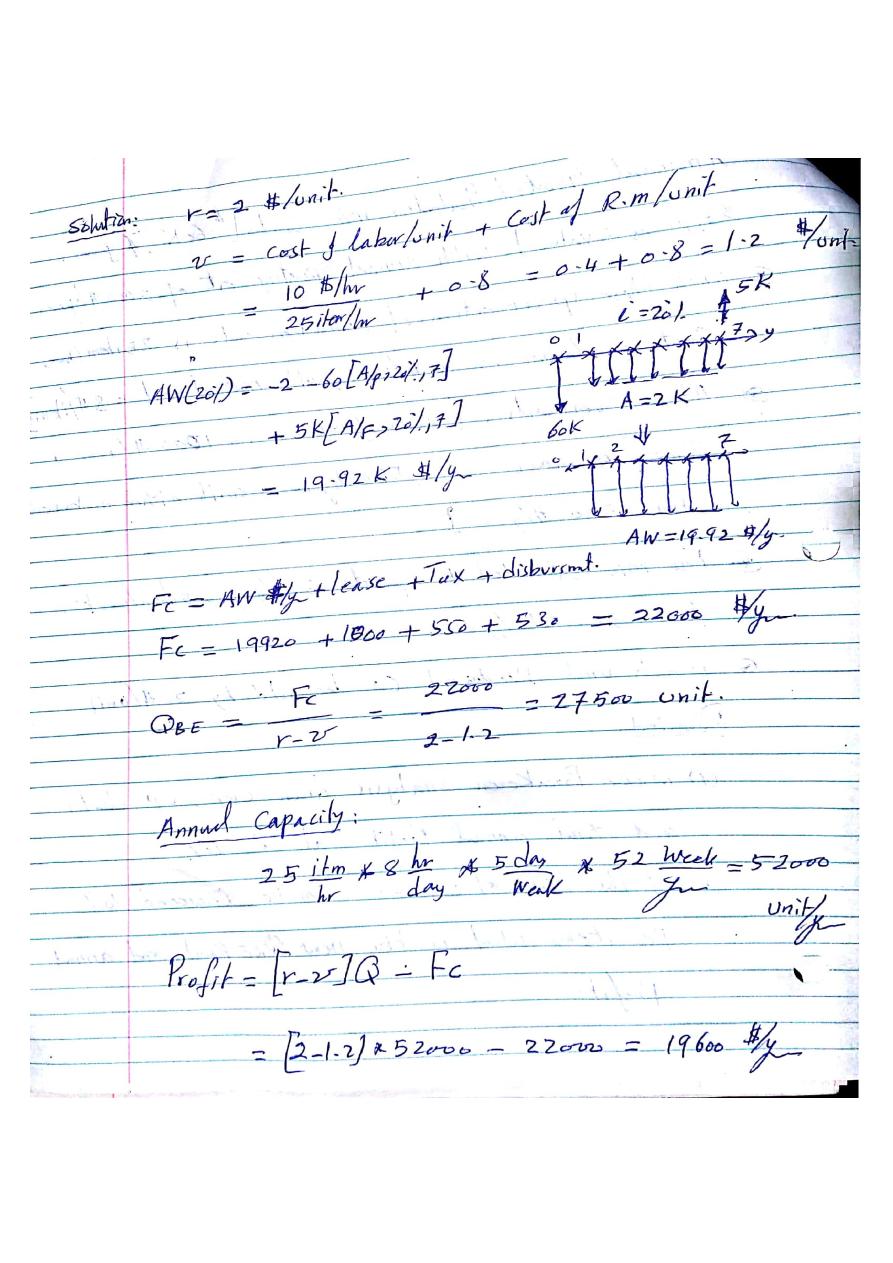 Solution: r = 2 $/unit.
v = cost of labor/unit + cost of R.m/unit
= 10 $/hr / 25 item/hr + 0.8 = 0.4 + 0.8 = 1.2 $/unit
i = 20%
5K
0 1 7 y
AW(20%) = -2 - 60[A/p, 20%, 7]
A = 2K
+ 5K[A/F, 20%, 7]
60K
0 1 2 7
= 19.92 K $/y
AW = 19.92 $/y
Fc = AW $/y + lease + Tax + disbursmt.
Fc = 19920 + 1000 + 550 + 530 = 22000 $/y
QBE = Fc / r-v = 22000 / 2-1.2 = 27500 unit.
Annual Capacity:
25 itm/hr * 8 hr/day * 5 day/Weak * 52 Week/y = 52000
unit/y
Profit = [r-v]Q - Fc
= [2-1.2] * 52000 - 22000 = 19600 $/y